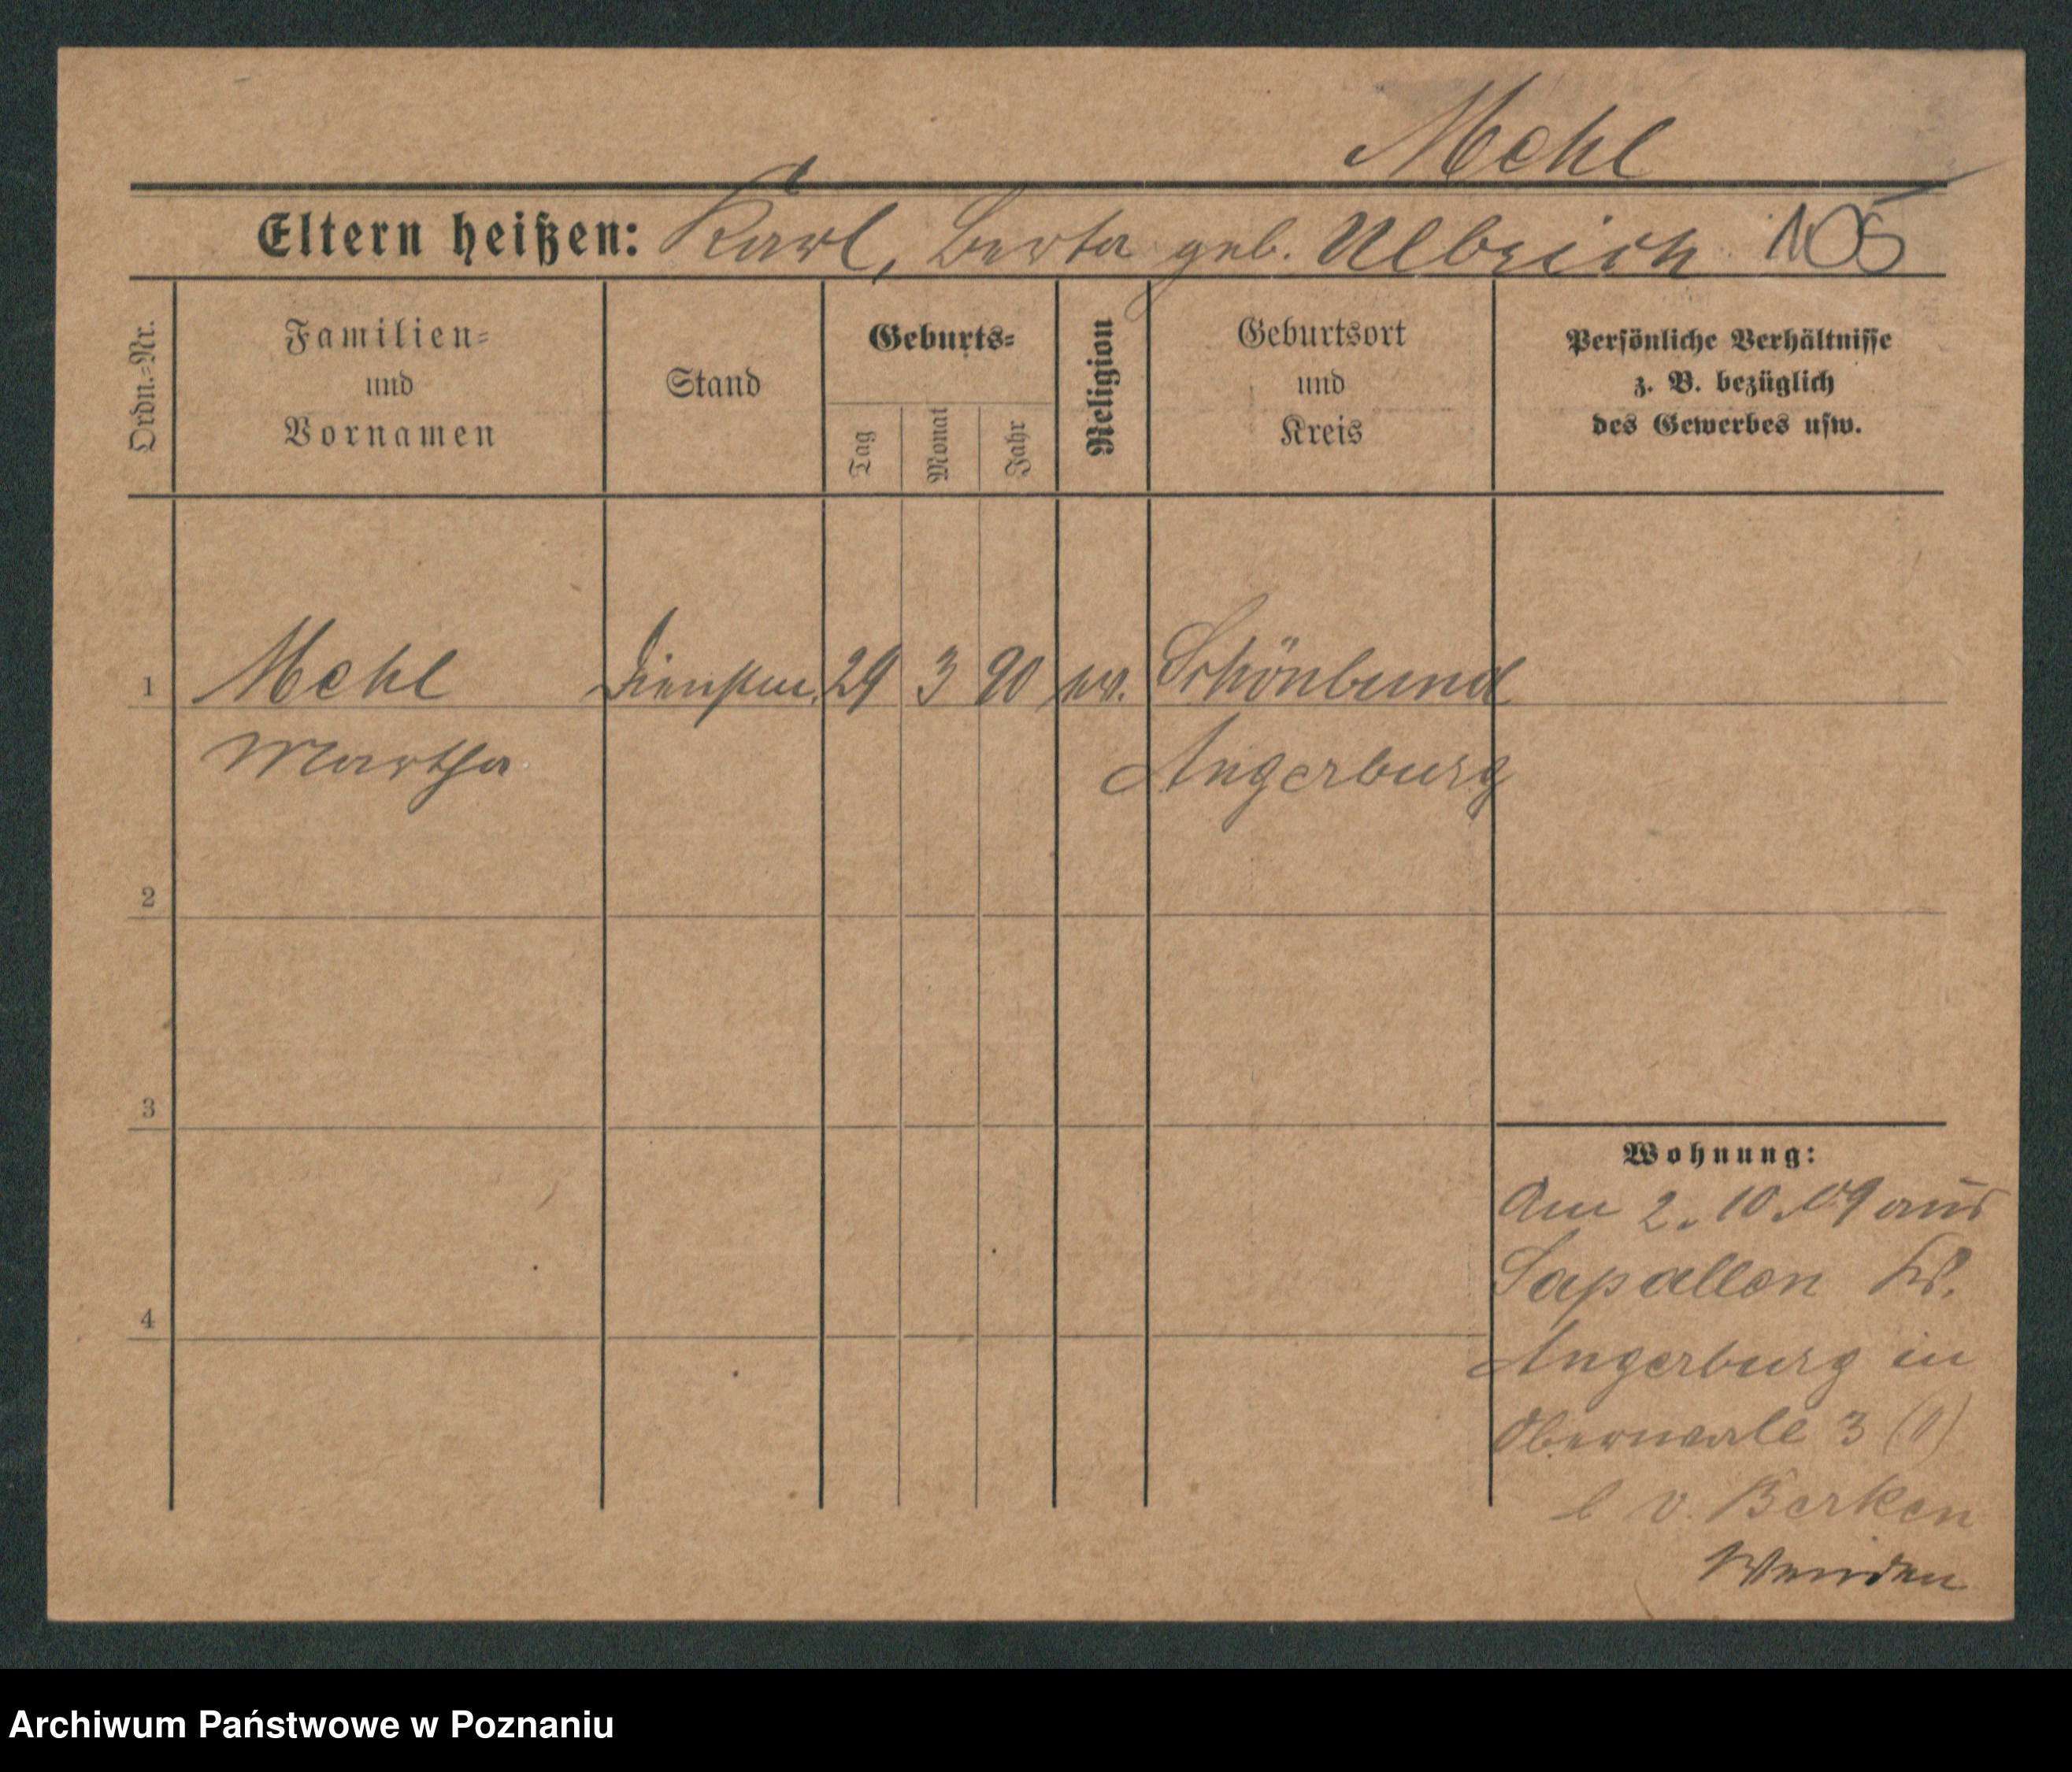 Mehl
Eltern heißen: Karl, Berta geb. Ulbrich 105
Ordn.-Nr.
Familien- und Vornamen
Stand
Geburts-
Tag
Monat
Jahr
Religion
Geburtsort und Kreis
Persönliche Verhältnisse
z. B. bezüglich
des Gewerbes usw.
1 Mehl Dienstm. 29 3 90 ev. Schönbund
Martha Angerburg
2
3
4
Wohnung:
Am 2. 10. 09 aus
Sapallen Kr.
Angerburg in
Oberwall 3 (I)
b v. Berken
Wenden
Archiwum Państwowe w Poznaniu